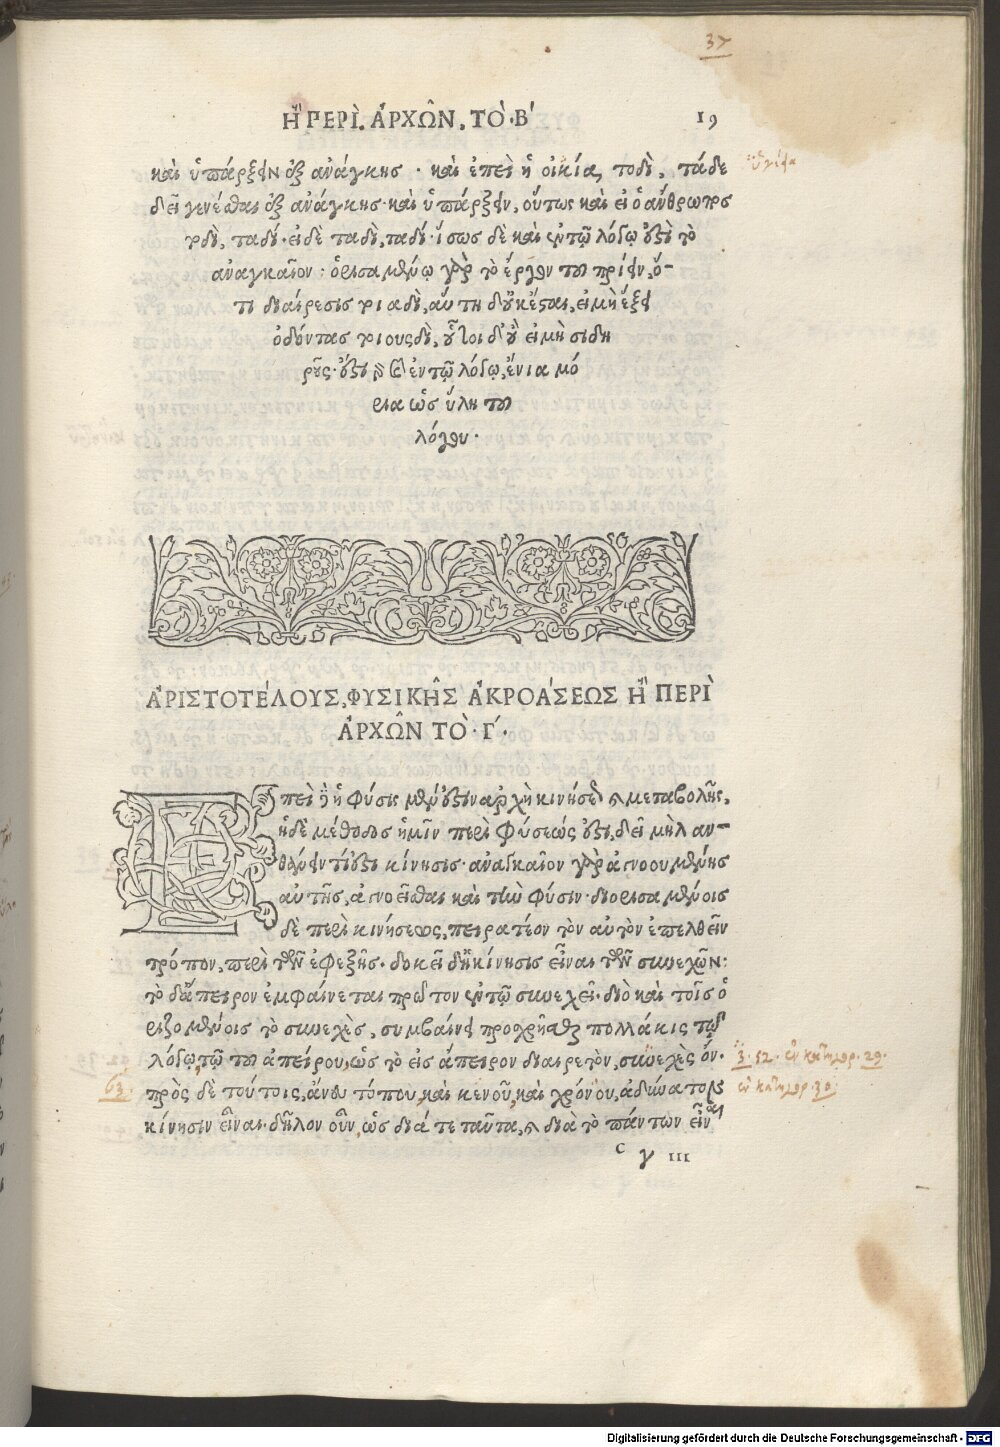 37
Ἢ ΠΕΡῚ. ἈΡΧΩ͂Ν. ΤῸ. Β΄ 19
καὶ ὑπάρξειν ἐξ ἀνάγκης · καὶ ἐπεὶ ἡ οἰκία, τοδὶ, τάδε
δεῖ γενέσθαι ἐξ ἀνάγκης· καὶ ὑπάρξειν, οὕτως καὶ εἰ ὁ ἄνθρωπος
τοδὶ, ταδί· εἰ δὲ ταδὶ, ταδί· ἴσως δὲ καὶ ἐν τῷ λόγῳ ἐστὶ τὸ
ἀναγκαῖον : ὁρισαμένῳ γὰρ τὸ ἔργον τοῦ πρίειν, ὅ-
τι διαίρεσις τοιαδὶ, αὕτη δ' οὐκ ἔσται, εἰ μὴ ἕξει
ὀδόντας τοιουσδὶ, οὗτοι δ' οὒ εἰ μὴ σιδη
ροῦς· ἔστι γὰρ καὶ ἐν τῷ λόγῳ, ἔνια μό
ρια ὡς ὕλη τοῦ
λόγου ·
ἈΡΙΣΤΟΤΈΛΟΥΣ, ΦΥΣΙΚΗ͂Σ ἈΚΡΟΆΣΕΩΣ Ἢ ΠΕΡῚ
ἈΡΧΩ͂Ν ΤῸ · Γ΄ ·
Ἐπεὶ δὴ ἡ φύσις μὲν ἐστὶν ἀρχὴ κινήσεως καὶ μεταβολῆς,
ἡ δὲ μέθοδος ἡμῖν περὶ φύσεώς ἐστι, δεῖ μὴ λαν-
θάνειν τί ἐστι κίνησις· ἀναγκαῖον γὰρ ἀγνοουμένης
αὐτῆς, ἀγνοεῖσθαι καὶ τὴν φύσιν· διορισαμένοις
δὲ περὶ κινήσεως, πειρατέον τὸν αὐτὸν ἐπελθεῖν
τρόπον, περὶ τῶν ἐφεξῆς· δοκεῖ δὴ κίνησις εἶναι τῶν συνεχῶν :
τὸ δ' ἄπειρον ἐμφαίνεται πρῶτον ἐν τῷ συνεχεῖ· διὸ καὶ τοῖς ὁ
ριζομένοις τὸ συνεχὲς, συμβαίνει προχρῆσθαι πολλάκις τῷ
λόγῳ, τῷ τοῦ ἀπείρου, ὡς τὸ εἰς ἄπειρον διαιρετὸν, συνεχὲς ὄν·
πρὸς δὲ τούτοις, ἄνευ τόπου, καὶ κενοῦ, καὶ χρόνου, ἀδύνατον
κίνησιν εἶναι· δῆλον οὖν, ὡς διά τε ταῦτα, καὶ διὰ τὸ πάντων εἶναι
63.
c γ III
Digitalisierung gefördert durch die Deutsche Forschungsgemeinschaft - DFG